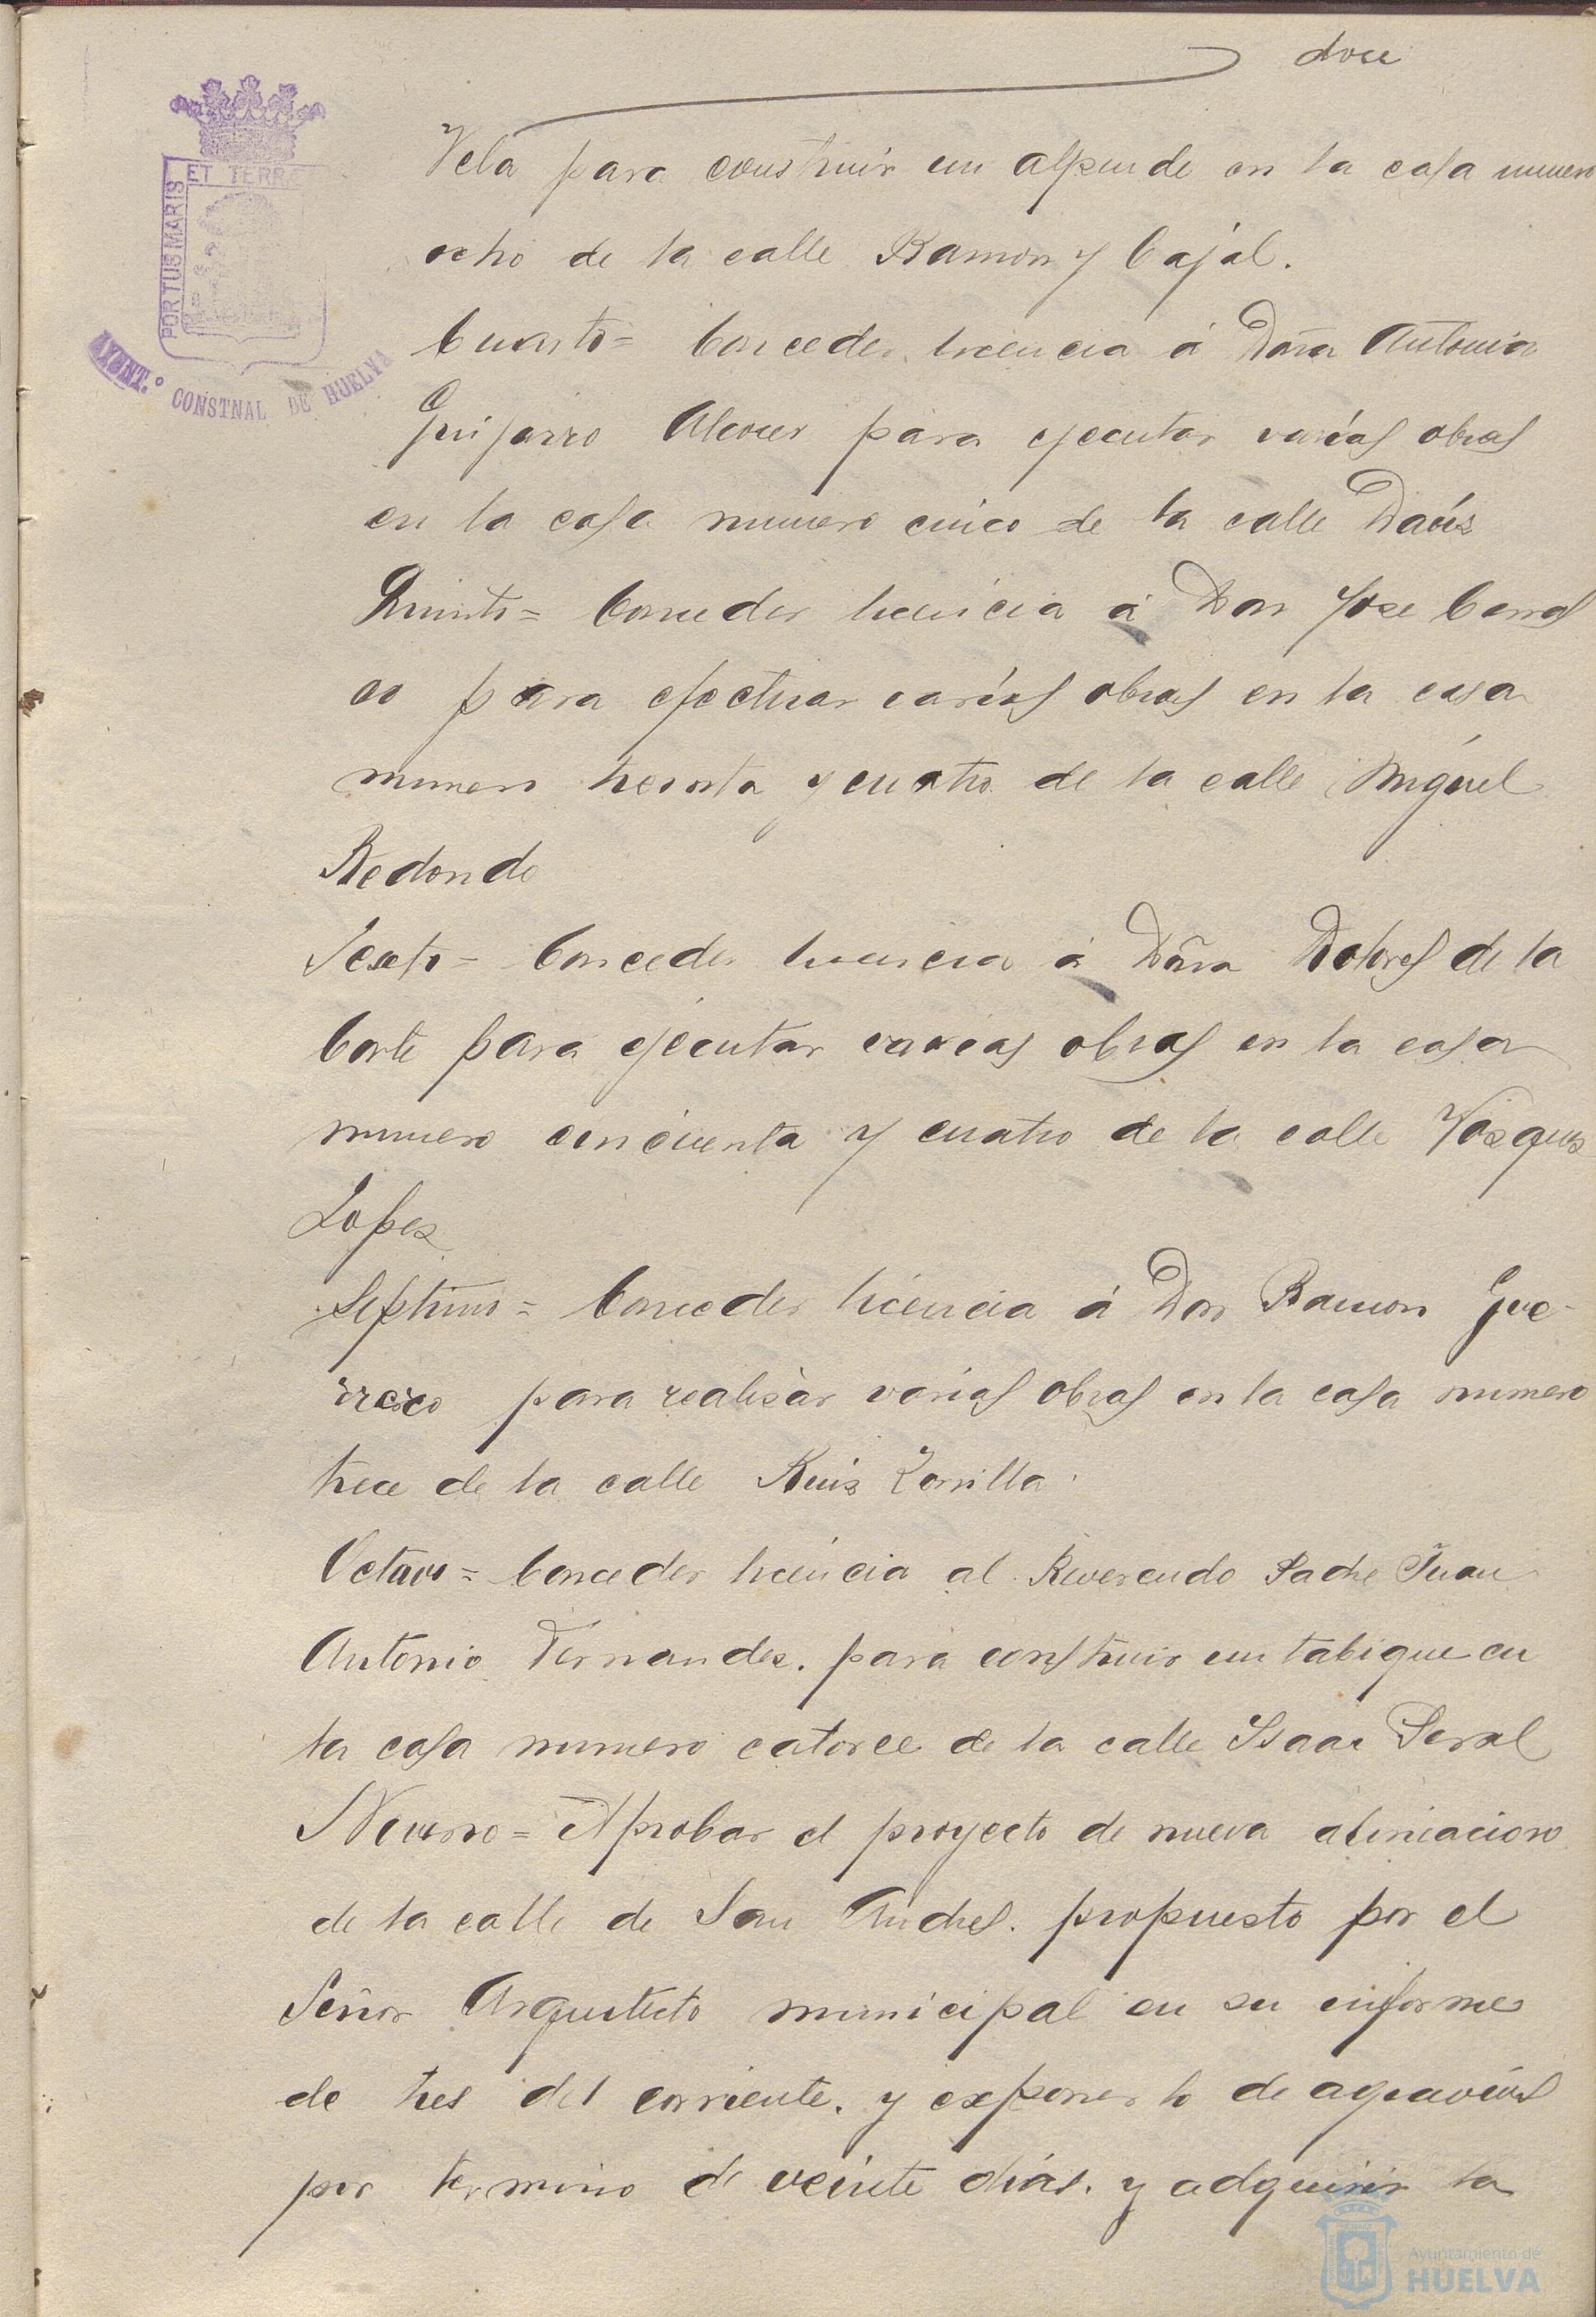 doce
Vela para construir un alpende en la casa numero
ocho de la calle Ramon y Cajal.
Cuarto= Conceder licencia á Doña Antonia
Guijarro para ejecutar varias obras
en la casa numero cinco de la calle Daoiz
Quinto= Conceder licencia á Don Jose Carras
co para efectuar varias obras en la casa
numero treinta y cuatro de la calle Miguel
Redondo
Sexto= Conceder licencia á Doña Dolores de la
Corte para ejecutar varias obras en la casa
numero cincuenta y cuatro de la calle Vasquez
Lopez
Septimo= Conceder licencia á Don Ramon Gue-
rrero para realizar varias obras en la casa numero
trece de la calle Ruiz Zorrilla.
Octavo= Conceder licencia al Reverendo Padre Juan
Antonio Fernandez. para construir un tabique en
la casa numero catorce de la calle Isaac Peral
Noveno= Aprobar el proyecto de nueva alineacion
de la calle de San Andres. propuesto por el
Señor Arquitecto municipal en su informe
de tres del corriente. y exponerlo de agravios
por termino de veinte dias. y adquirir la
PORTUS MARIS
ET TERRE
AYUNT.º CONSTNAL DE HUELVA
Ayuntamiento de
HUELVA